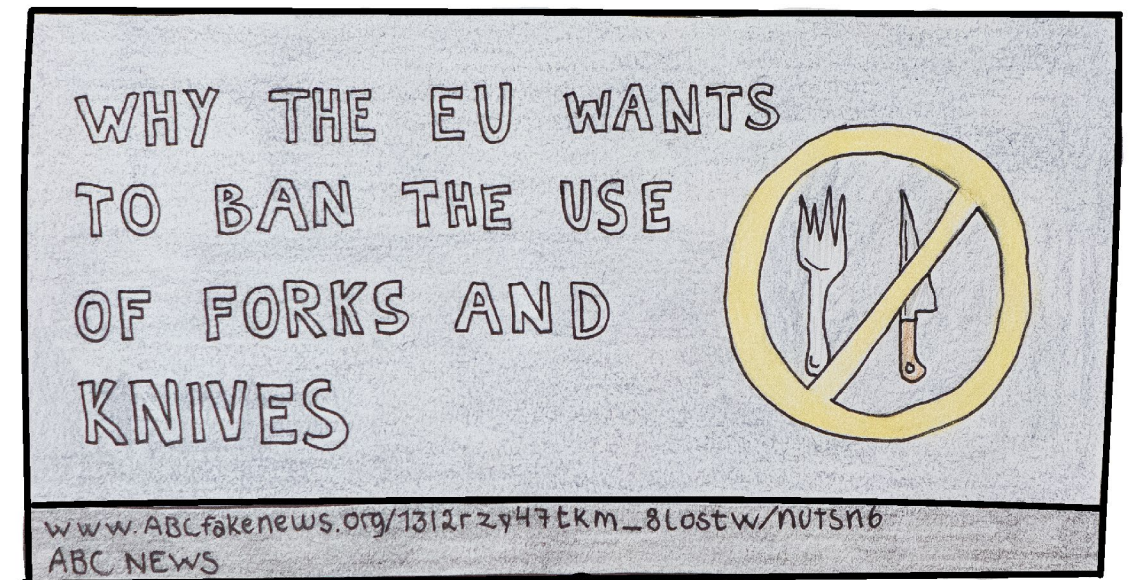 WHY THE EU WANTS
TO BAN THE USE
OF FORKS AND
KNIVES
www.ABCfakenews.org/1312rzy47tkm_8lostw/nutsn6
ABC NEWS